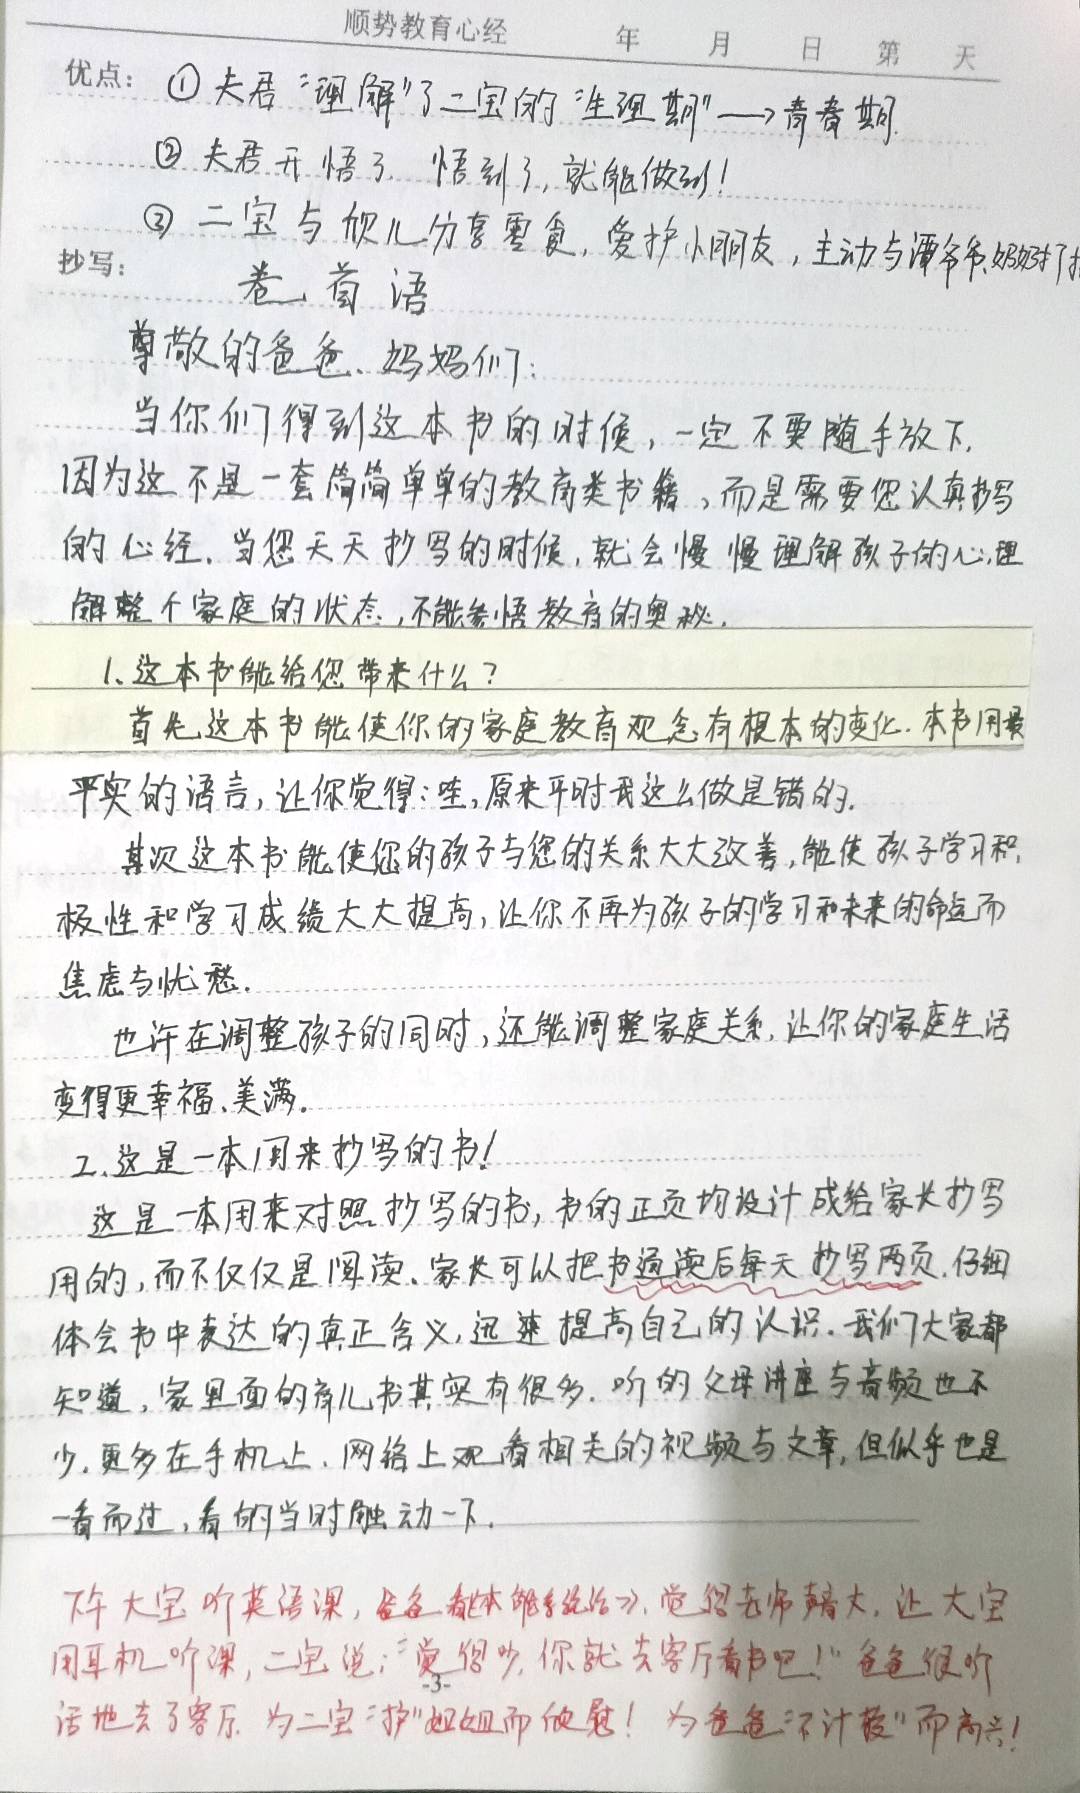 顺势教育心经 年 月 日 第 天
优点：①夫君“理解”了二宝的“生理期”→青春期.
②夫君开悟了. 悟到了,就能做到!
③二宝与欣儿分享零食, 爱护小朋友, 主动与谭爷爷、奶奶打了
抄写：
卷首语
尊敬的爸爸、妈妈们:
当你们得到这本书的时候,一定不要随手放下.
因为这不是一套简简单单的教育类书籍,而是需要您认真抄写
的心经.当您天天抄写的时候,就会慢慢理解孩子的心,理
解整个家庭的状态,不能参悟教育的奥秘.
1、这本书能给您带来什么?
首先这本书能使你的家庭教育观念有根本的变化.本书用最
平实的语言,让你觉得:哇,原来平时我这么做是错的.
其次这本书能使您的孩子与您的关系大大改善,能使孩子学习积
极性和学习成绩大大提高,让你不再为孩子的学习和未来的命运而
焦虑与忧愁.
也许在调整孩子的同时,还能调整家庭关系,让你的家庭生活
变得更幸福、美满.
2、这是一本用来抄写的书!
这是一本用来对照抄写的书,书的正页均设计成给家长抄写
用的,而不仅仅是阅读、家长可以把书通读后每天抄写两页.仔细
体会书中表达的真正含义,迅速提高自己的认识.我们大家都
知道,家里面的育儿书其实有很多.听的父母讲座与音频也不
少.更多在手机上、网络上观看相关的视频与文章,但似乎也是
一看而过,看的当时触动一下.
下午大宝听英语课,爸爸看《本能系统论》,觉得老师声音大,让大宝
用耳机听课,二宝说:“觉得吵,你就去客厅看书吧!”爸爸很听
-3-
话地去了客厅.为二宝“护”姐姐而欣慰! 为爸爸“不计较”而高兴!